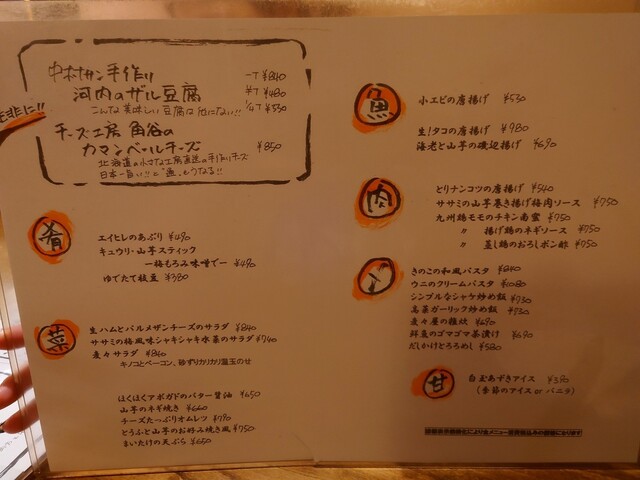 是非に!!
中村サン手作り 一丁 ¥840
河内のザル豆腐 半丁 ¥480
こんな美味しい豆腐は他にない!! ¼丁 ¥330
チーズ工房 角谷の
カマンベールチーズ ¥850
北海道の小さな工房直送の手作りチーズ
日本一旨い!!と"通"もうなる!!
肴
エイヒレのあぶり ¥490
キュウリ・山芋スティック
ー梅もろみ味噌でー ¥490
ゆでたて枝豆 ¥380
菜
生ハムとパルメザンチーズのサラダ ¥840
ササミの梅風味シャキシャキ水菜のサラダ ¥740
麦々サラダ ¥840
キノコとベーコン、砂ずりカリカリ温玉のせ
ほくほくアボガドのバター醤油 ¥650
山芋のネギ焼き ¥660
チーズたっぷりオムレツ ¥790
とうふと山芋のお好み焼き風 ¥750
まいたけの天ぷら ¥650
魚
小エビの唐揚げ ¥530
生!タコの唐揚げ ¥980
海老と山芋の磯辺揚げ ¥690
肉
とりナンコツの唐揚げ ¥540
ササミの山芋巻き揚げ梅肉ソース ¥750
九州鶏モモのチキン南蛮 ¥750
〃 揚げ鶏のネギソース ¥750
〃 蒸し鶏のおろしポン酢 ¥750
きのこの和風パスタ ¥840
ウニのクリームパスタ ¥1080
シンプルなシャケ炒め飯 ¥730
高菜ガーリック炒め飯 ¥730
麦々屋の雑炊 ¥690
鮮魚のゴマゴマ茶漬け ¥690
だしかけとろろめし ¥580
甘
白玉あずきアイス ¥390
(季節のアイス or バニラ)